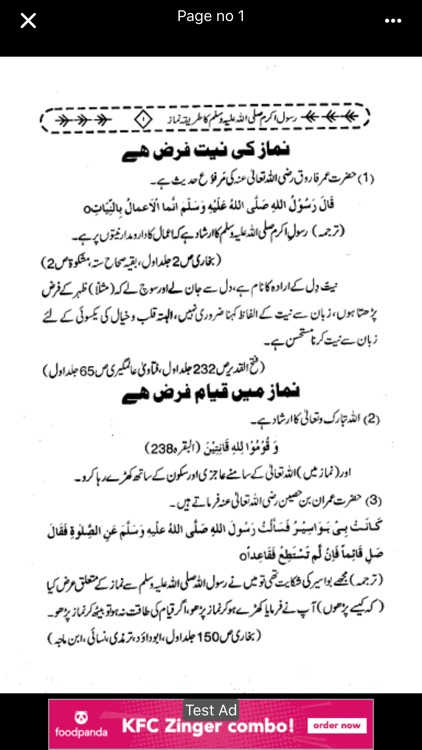 Page no 1
رسول اکرم صلی اللہ علیہ وسلم کا طریقہ نماز
۱
نماز کی نیت فرض ھے
(1) حضرت عمر فاروق رضی اللہ تعالیٰ عنہ کی مرفوع حدیث ہے۔
قَالَ رَسُوْلُ اللهِ صَلَّى اللهُ عَلَيْهِ وَسَلَّمَ اِنَّما الْاَعمالُ بِالنِّيَّاتِo
(ترجمہ) رسول اکرم صلی اللہ علیہ وسلم کا ارشاد ہے کہ اعمال کا دارومدار نیتوں پر ہے۔
(بخاری ص2 جلد اول، بقیہ صحاح ستہ مشکوٰۃ ص2)
نیت دِل کے ارادہ کا نام ہے، دل سے جان لے اور سوچ لے کہ (مثلاً) ظہر کے فرض
پڑھتا ہوں، زبان سے نیت کے الفاظ کہنا ضروری نہیں، البتہ قلب و خیال کی یکسوئی کے لئے
زبان سے نیت کرنا مستحسن ہے۔
(فتح القدیر ص232 جلد اول، فتاویٰ عالمگیری ص65 جلد اول)
نماز میں قیام فرض ھے
(2) اللہ تبارک وتعالیٰ کا ارشاد ہے۔
وَ قُوْمُوْا لِلّٰهِ قَانِتِيْنَ (البقرہ 238)
اور (نماز میں) اللہ تعالیٰ کے سامنے عاجزی اور سکون کے ساتھ کھڑے رہا کرو۔
(3) حضرت عمران بن حصین رضی اللہ تعالیٰ عنہ فرماتے ہیں۔
كَانَتْ بِىْ بَوَاسِيْرُ فَسَأَلْتُ رَسُوْلَ اللهِ صَلَّى اللهُ عَلَيْهِ وَسَلَّمَ عَنِ الصَّلٰوةِ فَقَالَ
صَلِّ قَائِماً فَاِنْ لَّمْ تَسْتَطِعْ فَقَاعِداًo
(ترجمہ) مجھے بواسیر کی شکایت تھی تو میں نے رسول اللہ صلی اللہ علیہ وسلم سے نماز کے متعلق عرض کیا
(کہ کیسے پڑھوں) آپ نے فرمایا کھڑے ہو کر نماز پڑھو، اگر قیام کی طاقت نہ ہو تو بیٹھ کر نماز پڑھو۔
(بخاری ص150 جلد اول، ابوداؤد، ترمذی، نسائی، ابن ماجہ)
Test Ad
foodpanda
KFC Zinger combo!
order now